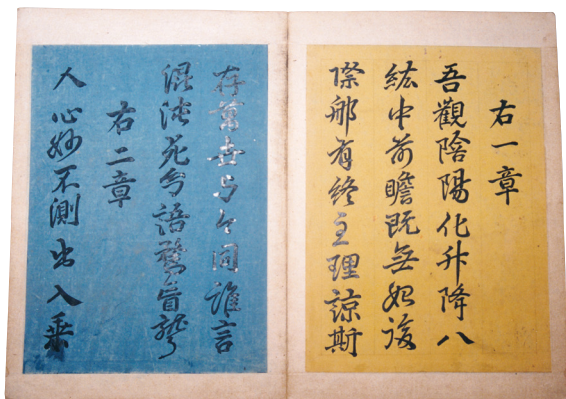 右一章
吾觀陰陽化升降八
紘中前瞻既無始後
際那有終至理諒斯
存萬世与今同誰言
混沌死幻語驚盲聾
右二章
人心妙不測出入乘